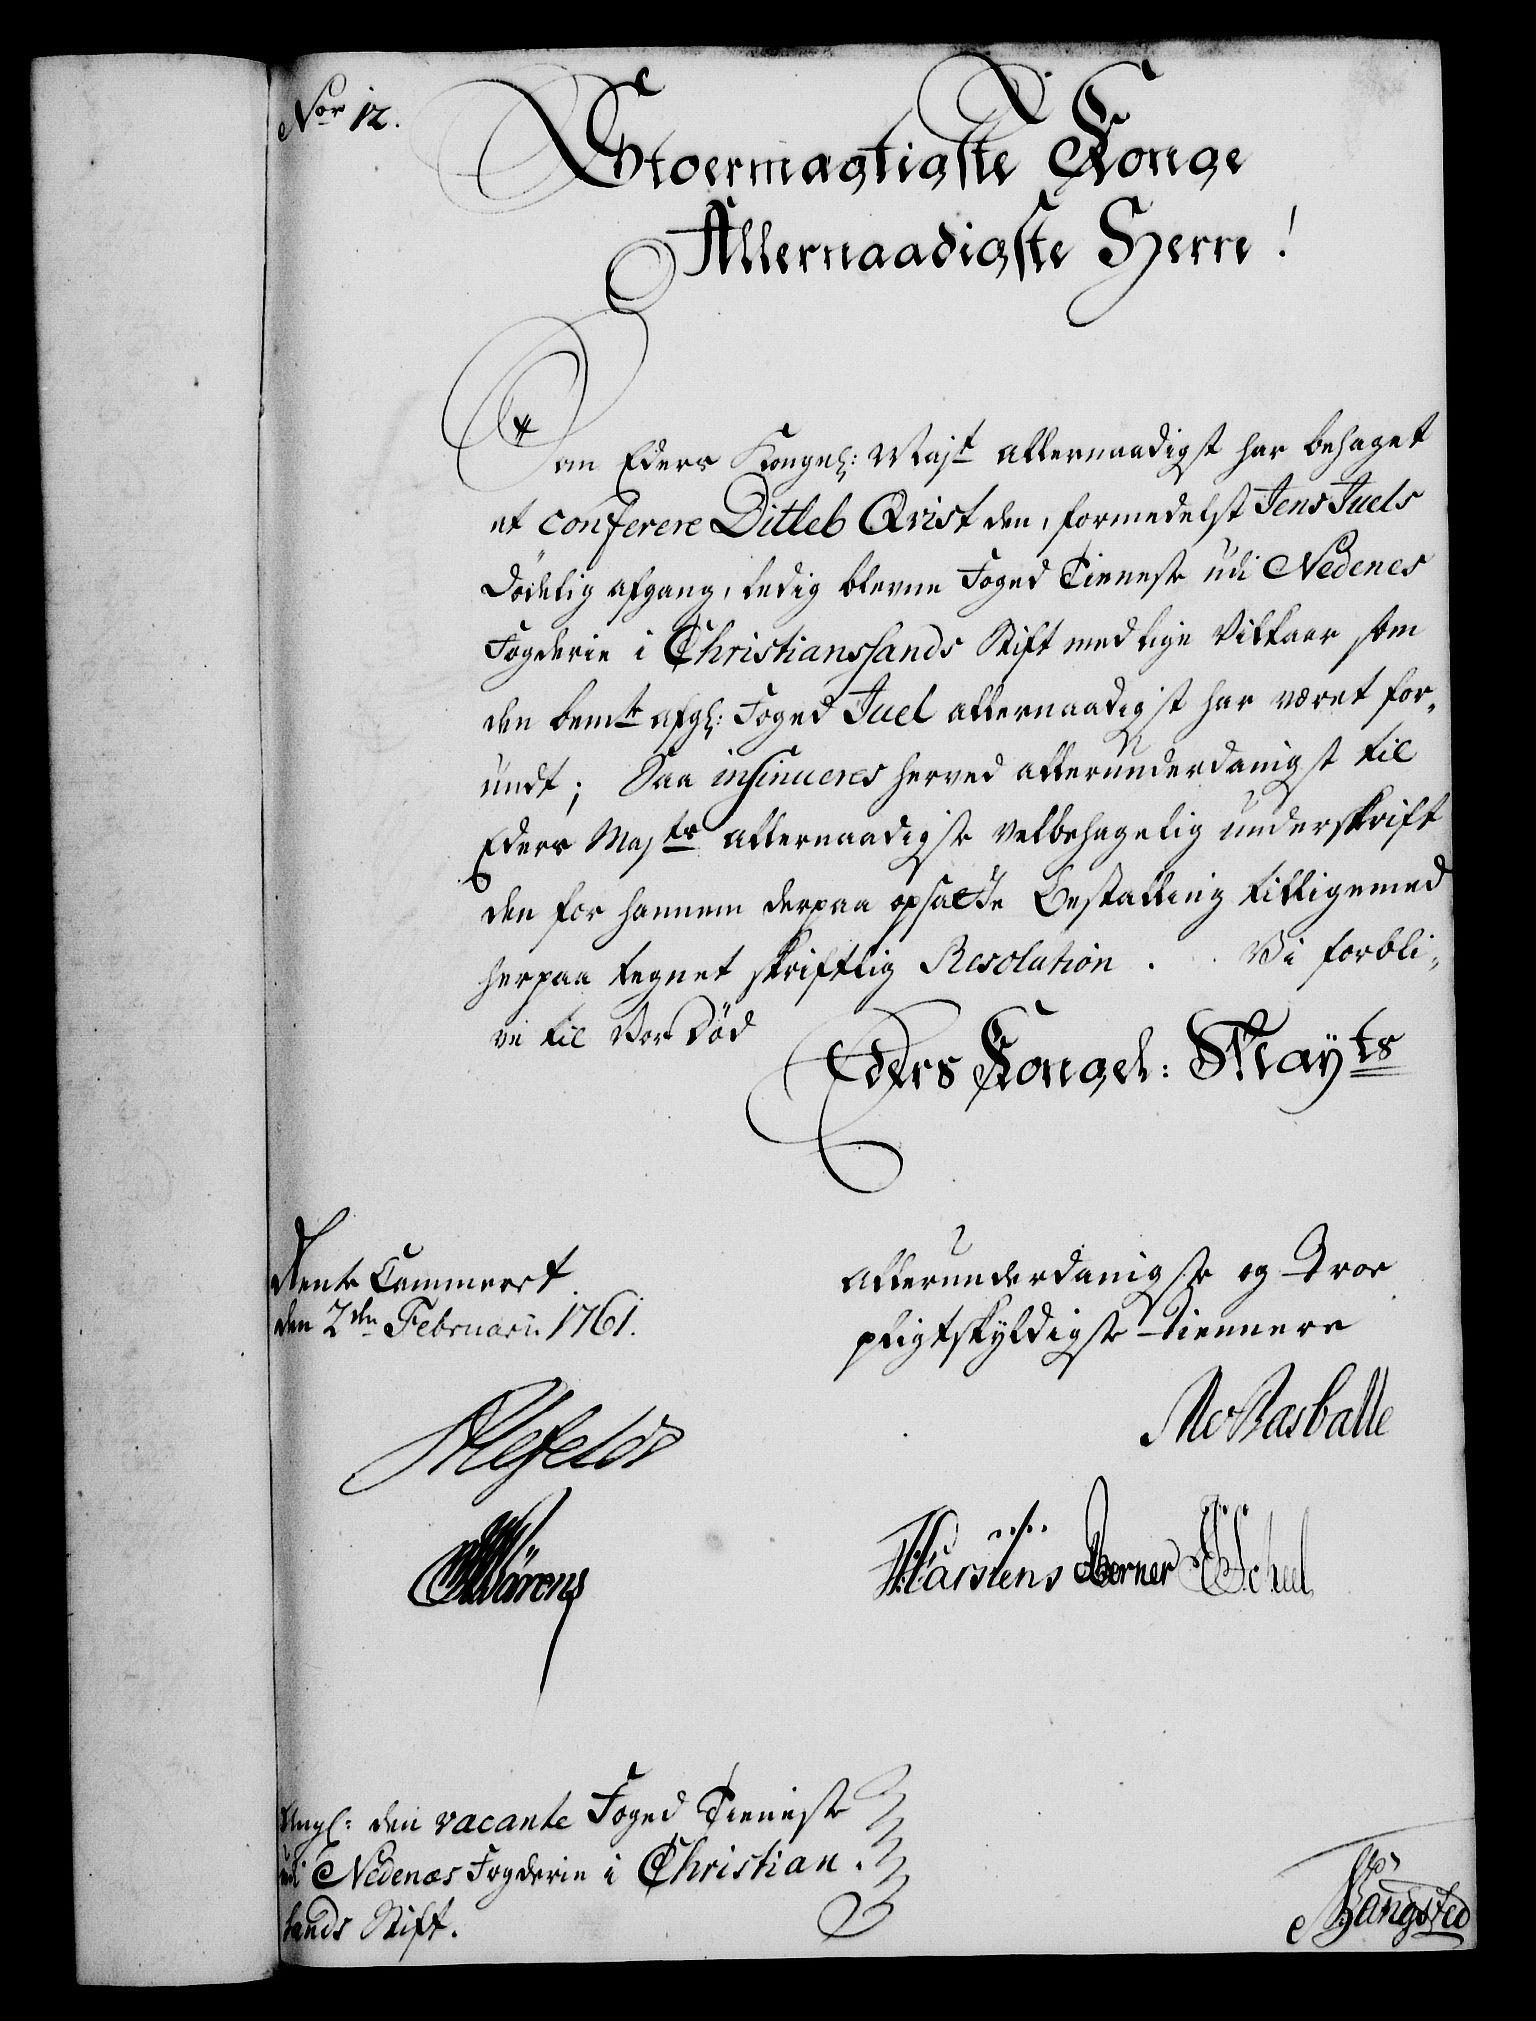 Nor 12.
Stoermægtigste Konge
Allernaadigste Herre!
Som Eders Kongel: Majt allernaadigst har behaget
at conferere Ditleb Qvist den, formedelst Jens Juels
Dödelig afgang, ledig blevne Foged Tieneste udi Nedenes
Fogderie i Christianssands Stift med lige Vilkaar som
den bemte afgl: Foged Juel allernaadigst har været for„
undt; Saa insinueres herved allerunderdanigst til
Eders Majts allernaadigste velbehagelig underskrift
den for hannem derpaa opsatte Bestalling tilligemed
herpaa tegnet skriftlig Resolution. Vi forbli„
ve til Vor Död
Eders Kongel: Mayts
Rente Cammeret
den 2den Februarii 1761.
allerunderdanigste og Troe
pligtskyldigste Tiennere
Ahlefeldt
Rasballe
Wärens
Karstens Berner Schul
Angl: den vacante Foged Tieneste
udi Nedenæs Fogderie i Christian„
sands Stift.
Bangsted